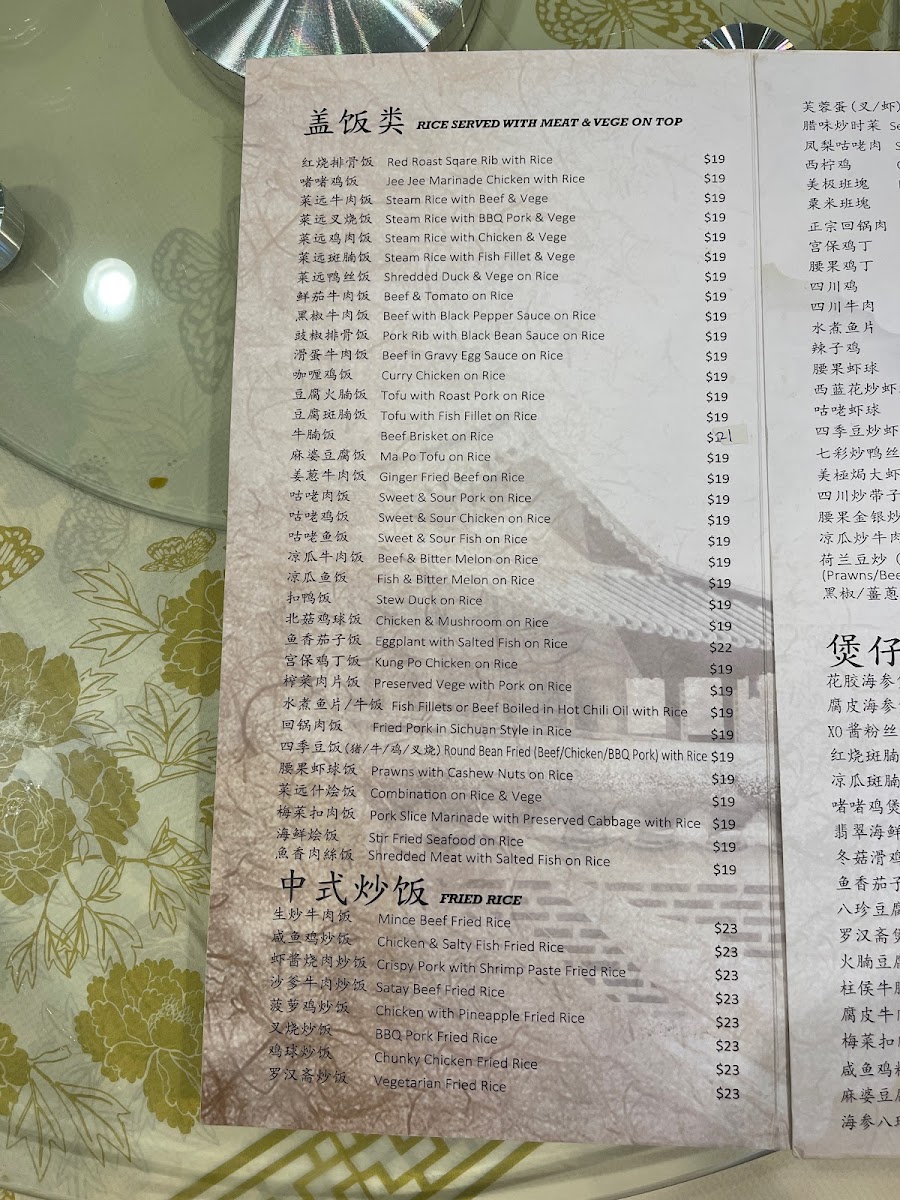 盖饭类 RICE SERVED WITH MEAT & VEGE ON TOP
红烧排骨饭 Red Roast Sqare Rib with Rice $19
啫啫鸡饭 Jee Jee Marinade Chicken with Rice $19
菜远牛肉饭 Steam Rice with Beef & Vege $19
菜远叉烧饭 Steam Rice with BBQ Pork & Vege $19
菜远鸡肉饭 Steam Rice with Chicken & Vege $19
菜远斑腩饭 Steam Rice with Fish Fillet & Vege $19
菜远鸭丝饭 Shredded Duck & Vege on Rice $19
鲜茄牛肉饭 Beef & Tomato on Rice $19
黑椒牛肉饭 Beef with Black Pepper Sauce on Rice $19
豉椒排骨饭 Pork Rib with Black Bean Sauce on Rice $19
滑蛋牛肉饭 Beef in Gravy Egg Sauce on Rice $19
咖喱鸡饭 Curry Chicken on Rice $19
豆腐火腩饭 Tofu with Roast Pork on Rice $19
豆腐斑腩饭 Tofu with Fish Fillet on Rice $19
牛腩饭 Beef Brisket on Rice $21
麻婆豆腐饭 Ma Po Tofu on Rice $19
姜葱牛肉饭 Ginger Fried Beef on Rice $19
咕咾肉饭 Sweet & Sour Pork on Rice $19
咕咾鸡饭 Sweet & Sour Chicken on Rice $19
咕咾鱼饭 Sweet & Sour Fish on Rice $19
凉瓜牛肉饭 Beef & Bitter Melon on Rice $19
凉瓜鱼饭 Fish & Bitter Melon on Rice $19
扣鸭饭 Stew Duck on Rice $19
北菇鸡球饭 Chicken & Mushroom on Rice $19
鱼香茄子饭 Eggplant with Salted Fish on Rice $22
宫保鸡丁饭 Kung Po Chicken on Rice $19
榨菜肉片饭 Preserved Vege with Pork on Rice $19
水煮鱼片/牛饭 Fish Fillets or Beef Boiled in Hot Chili Oil with Rice $19
回锅肉饭 Fried Pork in Sichuan Style in Rice $19
四季豆饭(猪/牛/鸡/叉烧) Round Bean Fried (Beef/Chicken/BBQ Pork) with Rice $19
腰果虾球饭 Prawns with Cashew Nuts on Rice $19
菜远什烩饭 Combination on Rice & Vege $19
梅菜扣肉饭 Pork Slice Marinade with Preserved Cabbage with Rice $19
海鲜烩饭 Stir Fried Seafood on Rice $19
魚香肉絲饭 Shredded Meat with Salted Fish on Rice $19
中式炒饭 FRIED RICE
生炒牛肉饭 Mince Beef Fried Rice $23
咸鱼鸡炒饭 Chicken & Salty Fish Fried Rice $23
虾酱烧肉炒饭 Crispy Pork with Shrimp Paste Fried Rice $23
沙爹牛肉炒饭 Satay Beef Fried Rice $23
菠萝鸡炒饭 Chicken with Pineapple Fried Rice $23
叉烧炒饭 BBQ Pork Fried Rice $23
鸡球炒饭 Chunky Chicken Fried Rice $23
罗汉斋炒饭 Vegetarian Fried Rice $23
芙蓉蛋(叉/虾)
腊味炒时菜 Se
凤梨咕咾肉 S
西柠鸡
美极班塊
粟米班塊
正宗回锅肉
宫保鸡丁
腰果鸡丁
四川鸡
四川牛肉
水煮鱼片
辣子鸡
腰果虾球
西蓝花炒虾
咕咾虾球
四季豆炒虾
七彩炒鸭丝
美極焗大虾
四川炒带子
腰果金银炒
凉瓜炒牛肉
荷兰豆炒(
(Prawns/Bee
黑椒/薑蔥
煲仔
花胶海参
腐皮海参
XO酱粉丝
红烧斑腩
凉瓜斑腩
啫啫鸡煲
翡翠海鲜
冬菇滑鸡
鱼香茄子
八珍豆腐
罗汉斋煲
火腩豆腐
柱侯牛腩
腐皮牛
梅菜扣
咸鱼鸡粒
麻婆豆腐
海参八珍